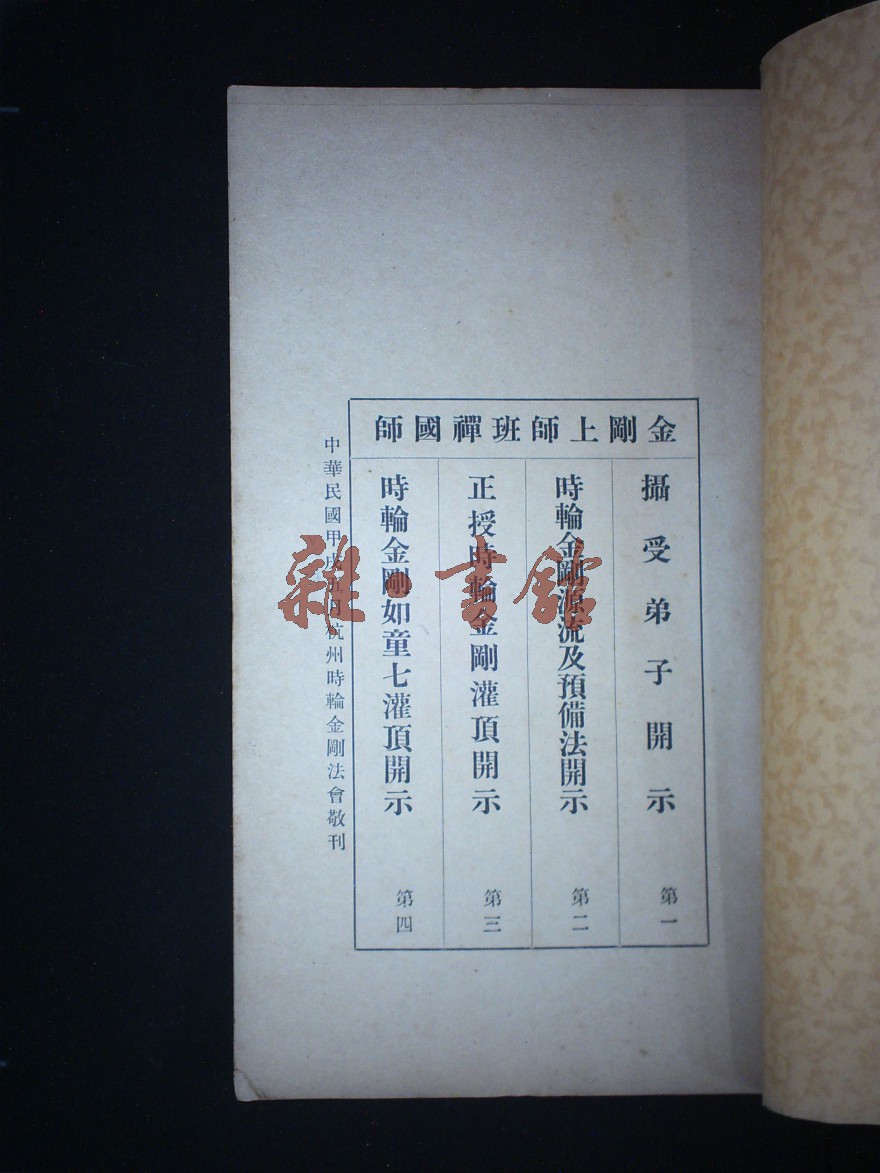 金剛上師班禪國師
攝受弟子開示 第一
時輪金剛源流及預備法開示 第二
正授時輪金剛灌頂開示 第三
時輪金剛如童七灌頂開示 第四
中華民國甲戌五月杭州時輪金剛法會敬刊
雜·書館